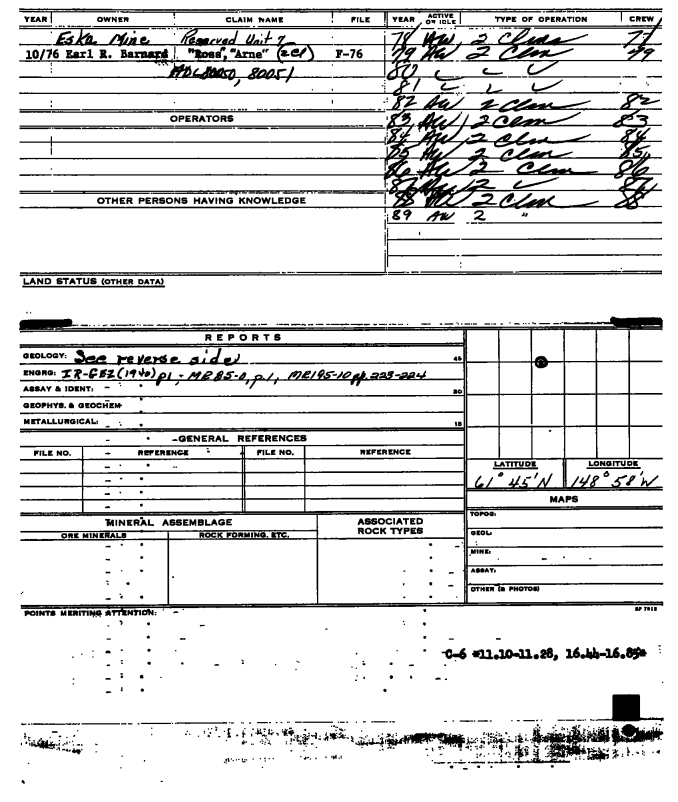 YEAR OWNER CLAIM NAME FILE YEAR ACTIVE OR IDLE TYPE OF OPERATION CREW
Eska Mine Reserved Unit 7
10/76 Earl R. Barnard "Ross","Arne" (2Cl) F-76
ADL80050, 80051
78 AW 2 Clms 77
79 AW 2 Clm 79
80 ✓ ✓ ✓
81 ✓ ✓ ✓
82 AW 2 Clm 82
OPERATORS
83 AW 2 Clm 83
84 AW 2 Clm 84
85 AW 2 Clm 85
86 AW 2 Clm 86
87 AW 2 ✓ 87
OTHER PERSONS HAVING KNOWLEDGE
88 AW 2 Clm 88
89 AW 2 "
LAND STATUS (OTHER DATA)
REPORTS
GEOLOGY: See reverse side 45
ENGRG: p1; ME 85-0, p.1, ME195-10 pp. 223-224
ASSAY & IDENT: 30
GEOPHYS. & GEOCHEM
METALLURGICAL: 15
GENERAL REFERENCES
FILE NO. REFERENCE FILE NO. REFERENCE
LATITUDE LONGITUDE
61° 45' N 148° 58' W
MAPS
MINERAL ASSEMBLAGE ASSOCIATED ROCK TYPES
ORE MINERALS ROCK FORMING, ETC.
TOPOG:
GEOL:
MINE:
ASSAY:
OTHER (& PHOTOS)
POINTS MERITING ATTENTION:
C-6 *11.10-11.28, 16.44-16.85*